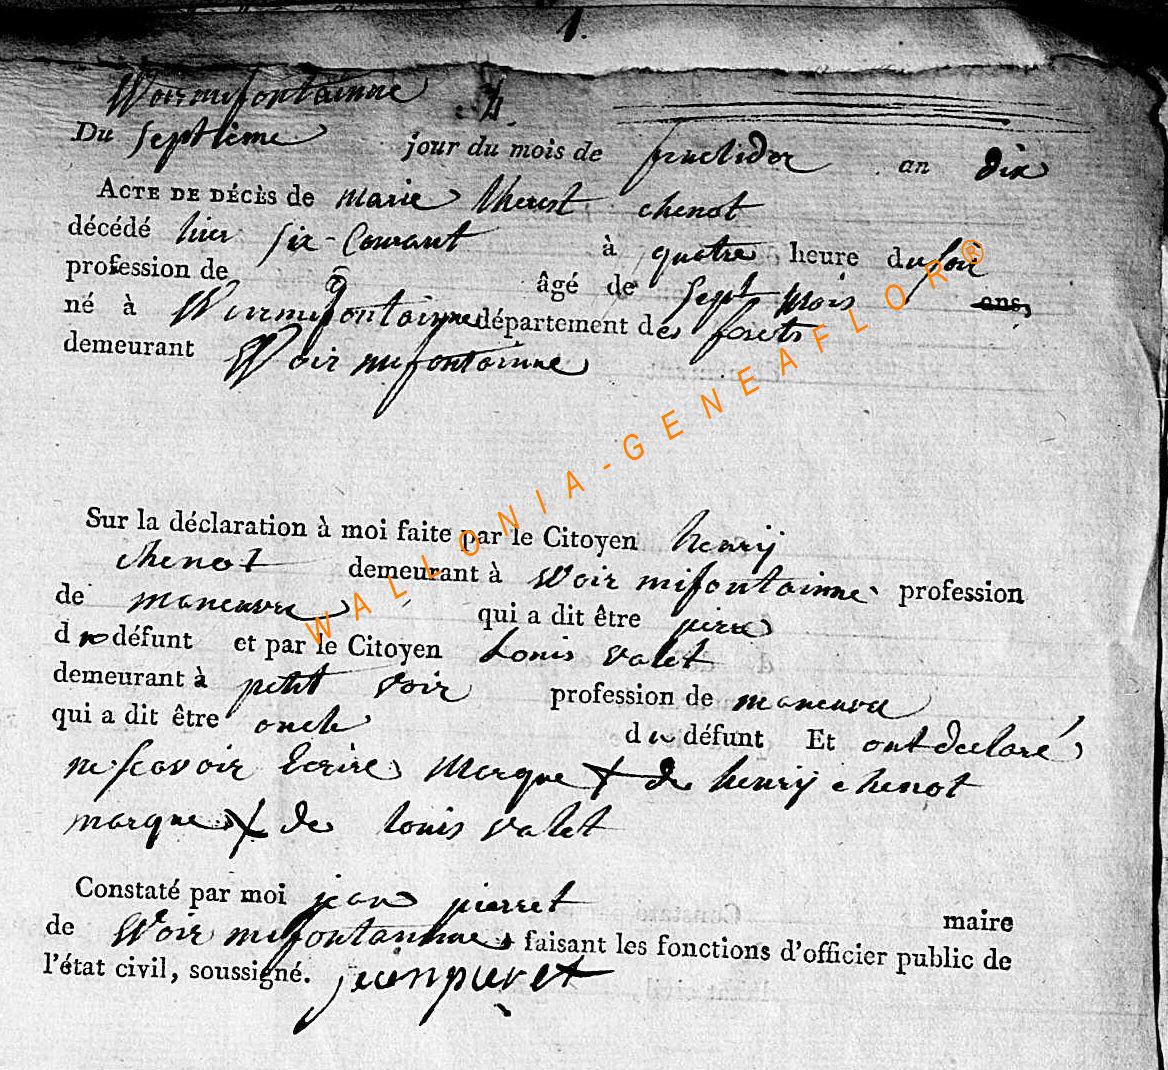 1.
Woirmifontainne
Du septieme jour du mois de fructidor an dix
ACTE DE DÉCÈS de marie therest chenot
décédé hier six Courant à quatre heure du soir
profession de âgé de sept mois ans
né à Woirmifontainne département des forets
demeurant Woir mifontainne
Sur la déclaration à moi faite par le Citoyen henrij
chenot demeurant à Woir mifontainne profession
de maneuvre qui a dit être pierre
du défunt et par le Citoyen Louis valet
demeurant à petit voir profession de maneuvre
qui a dit être oncle du défunt Et ont declaré
ne scavoir Ecrire marque + de henrij chenot
marque + de louis valet
Constaté par moi jean pierret maire
de Woir mifontainne faisant les fonctions d'officier public de
l'état civil, soussigné. jean pierret
WALLONIA-GENEAFLOR®